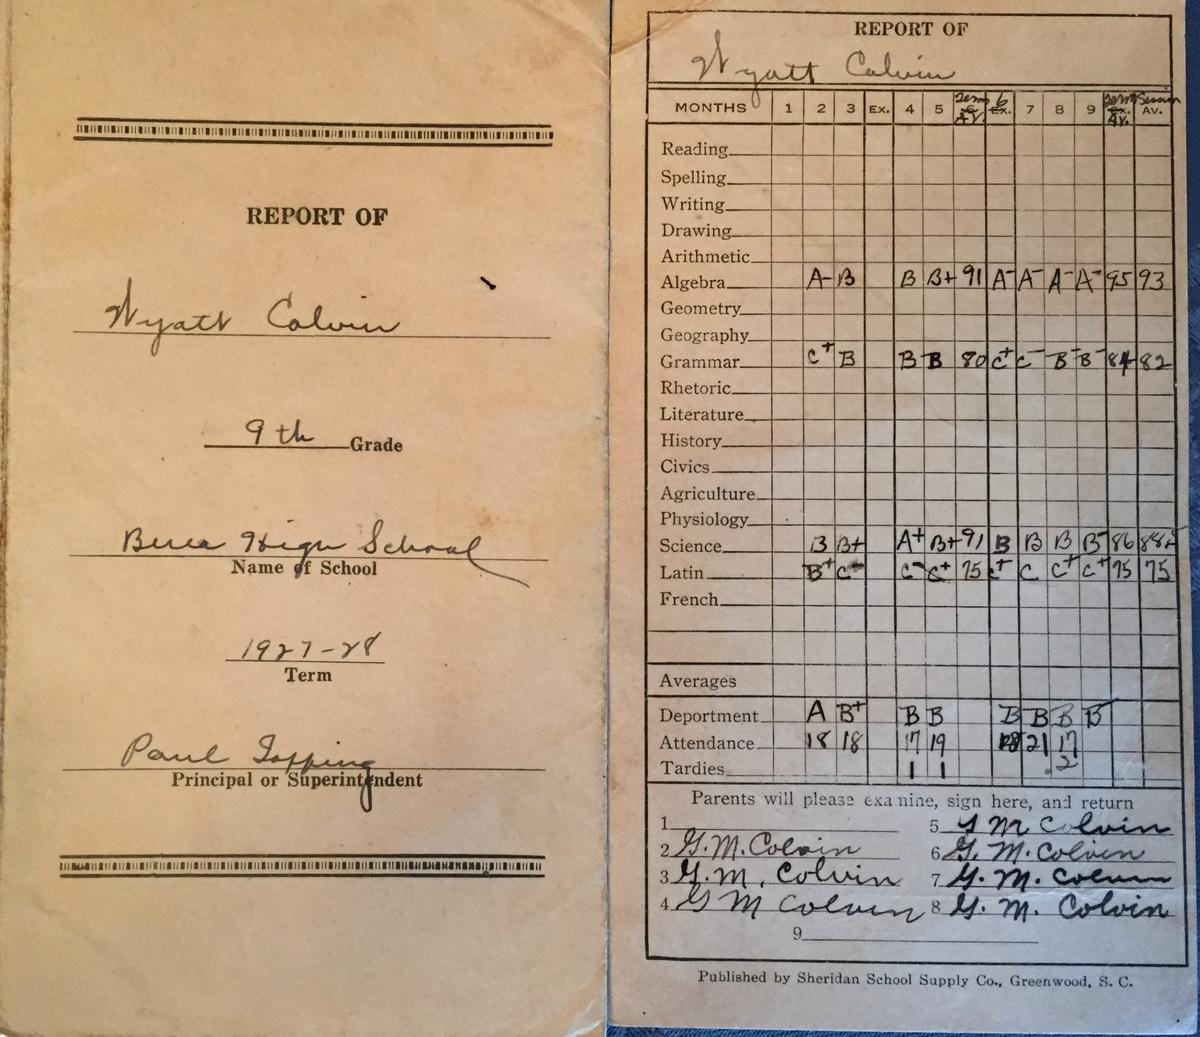 REPORT OF
Wyatt Colvin
9th Grade
Berea High School
Name of School
1927-28
Term
Paul Topping
Principal or Superintendent
REPORT OF
Wyatt Colvin
MONTHS 1 2 3 Ex. 4 5 Term Av. 6 7 8 9 Term Av. Session Av.
Reading
Spelling
Writing
Drawing
Arithmetic
Algebra A- B B B+ 91 A- A- A- A- 95 93
Geometry
Geography
Grammar C+ B B B 80 C+ C- B- B- 84 82
Rhetoric
Literature
History
Civics
Agriculture
Physiology
Science B B+ A+ B+ 91 B B B B- 86
Latin B+ C- C- C+ 75 C+ C C+ C+ 75 75
French
Averages
Deportment A B+ B B B B B B-
Attendance 18 18 17 19 21 17
Tardies 1 1 2
Parents will please examine, sign here, and return
1
2 G. M. Colvin
3 G. M. Colvin
4 G M Colvin
5 G M Colvin
6 G. M. Colvin
7 G. M. Colvin
8 G. M. Colvin
9
Published by Sheridan School Supply Co., Greenwood, S. C.